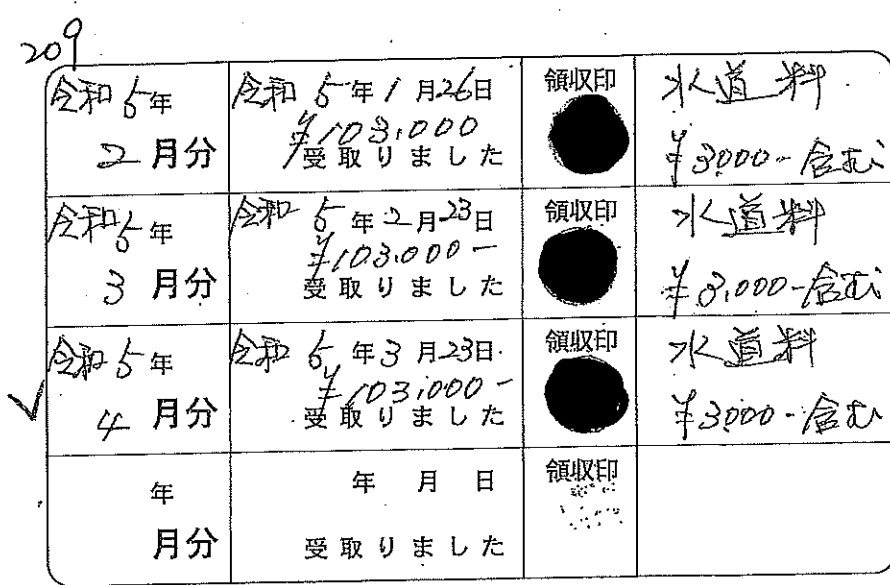 209
令和5年
2月分
令和5年1月26日
¥103,000
受取りました
領収印
水道料
¥3000-含む
令和5年
3月分
令和5年2月23日
¥103.000-
受取りました
領収印
水道料
¥3,000-含む
令和5年
4月分
令和5年3月23日
¥103,000-
受取りました
領収印
水道料
¥3000-含む
年
月分
年月日
受取りました
領収印